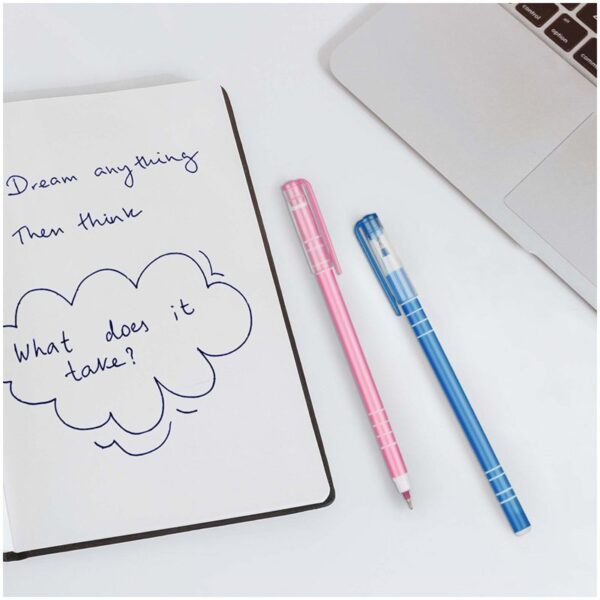 Dream anything
Then think
What does it
take?
control
alt
option
comm